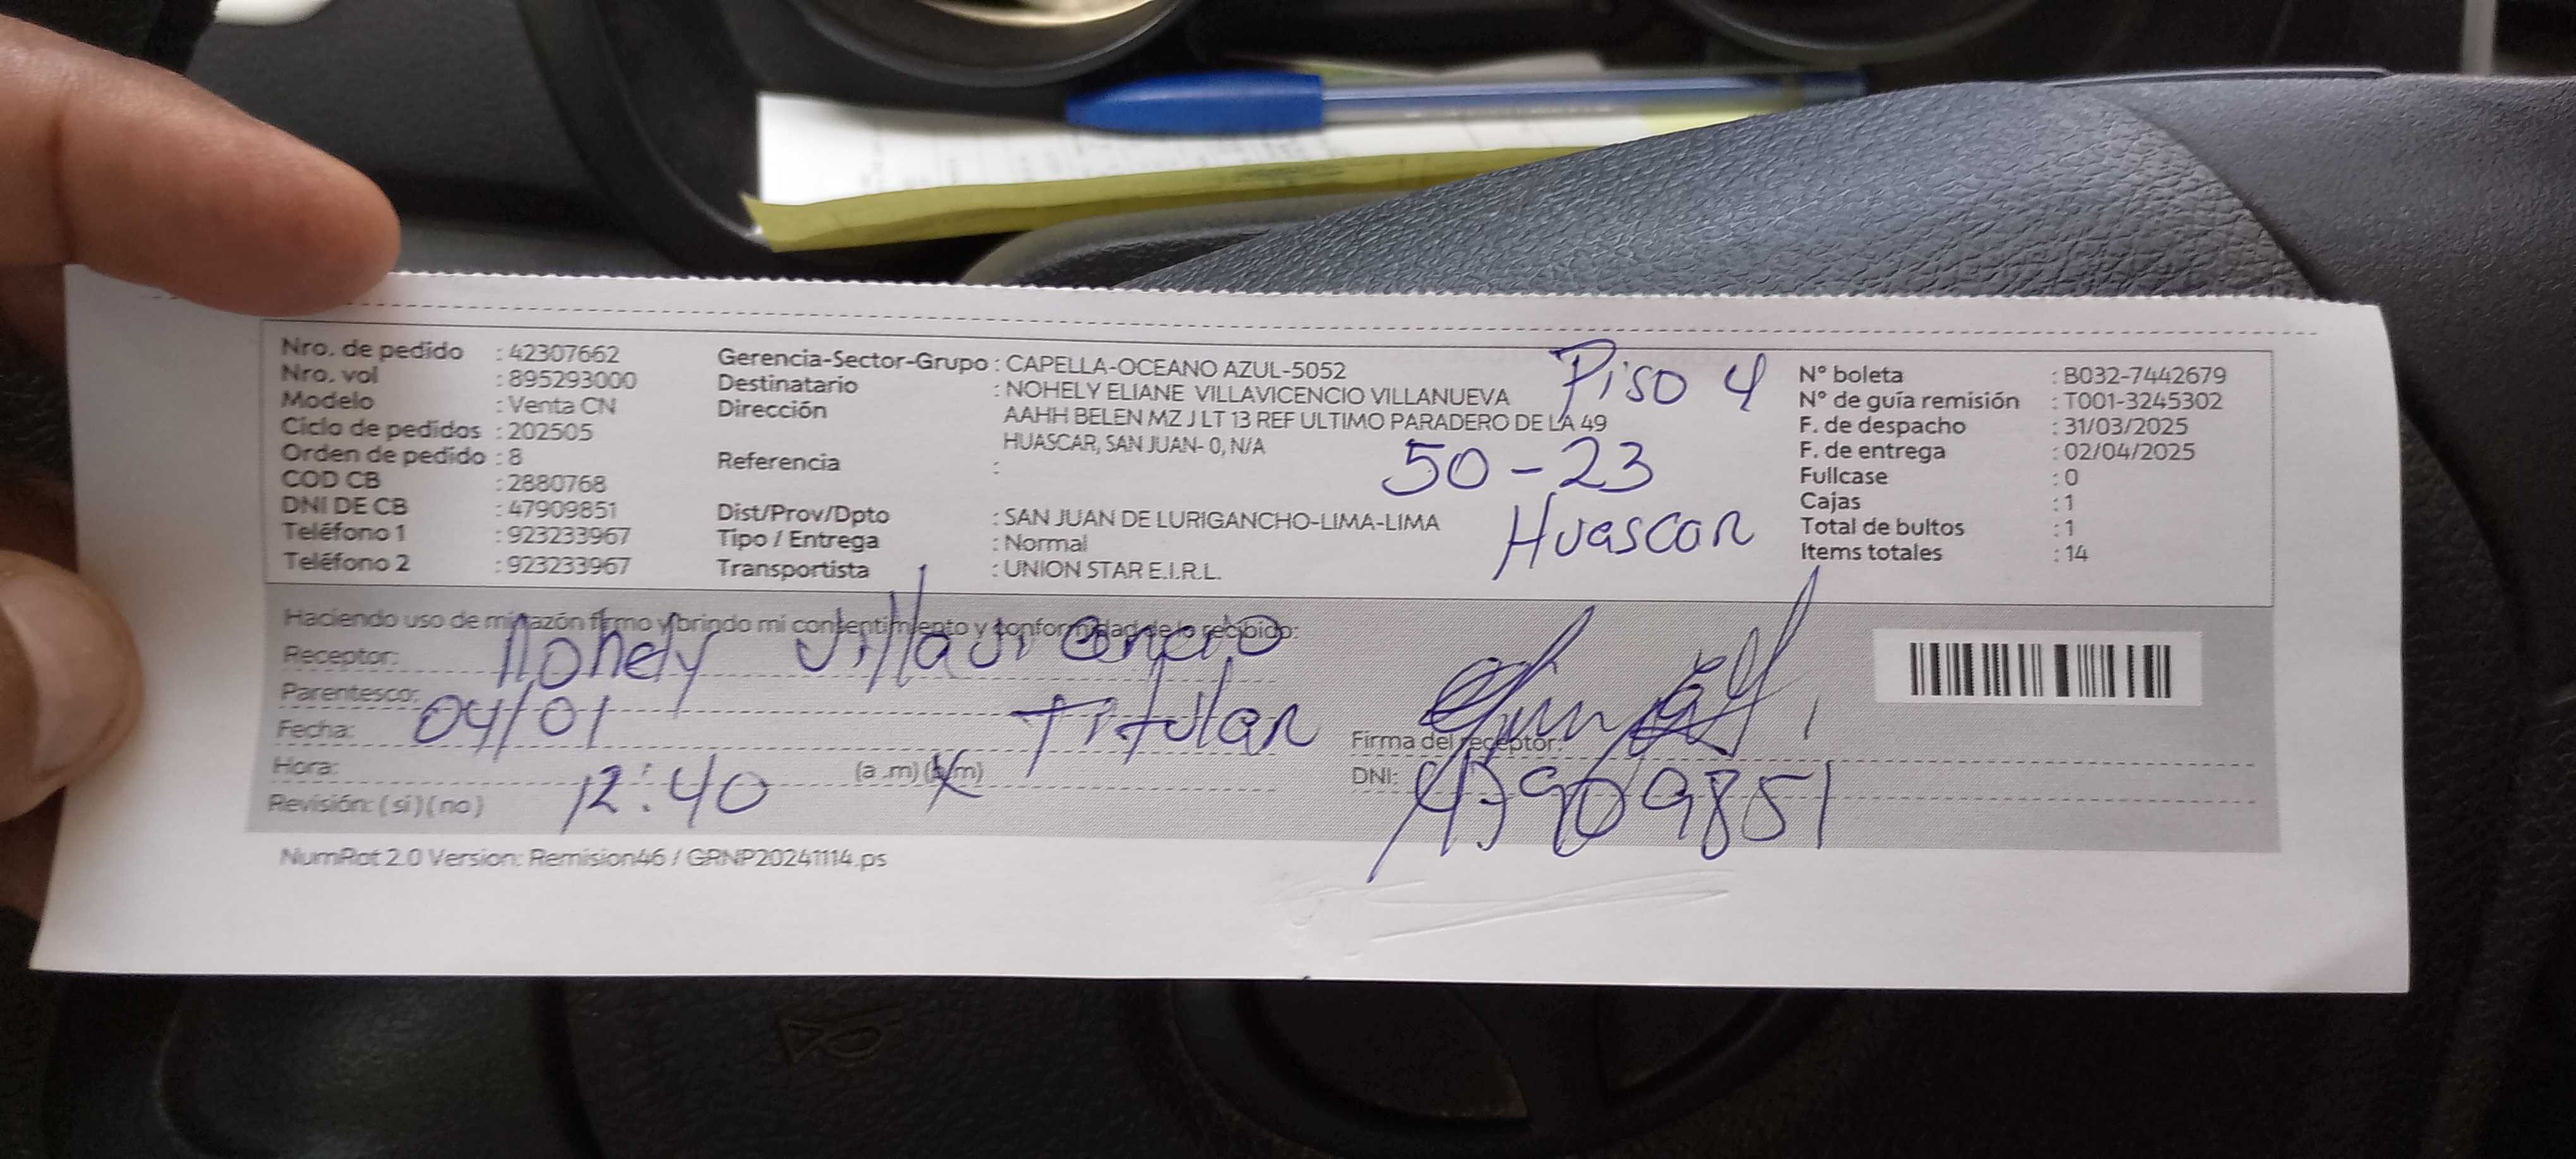 Nro. de pedido : 42307662
Nro. vol : 895293000
Modelo : Venta CN
Ciclo de pedidos : 202505
Orden de pedido : 8
COD CB : 2880768
DNI DE CB : 47909851
Teléfono 1 : 923233967
Teléfono 2 : 923233967
Gerencia-Sector-Grupo : CAPELLA-OCEANO AZUL-5052
Destinatario : NOHELY ELIANE VILLAVICENCIO VILLANUEVA
Dirección AAHH BELEN MZ J LT 13 REF ULTIMO PARADERO DE LA 49
HUASCAR, SAN JUAN- 0, N/A
Referencia :
Dist/Prov/Dpto : SAN JUAN DE LURIGANCHO-LIMA-LIMA
Tipo / Entrega : Normal
Transportista : UNION STAR E.I.R.L.
Piso 4
50-23
Huascar
N° boleta : B032-7442679
N° de guía remisión : T001-3245302
F. de despacho : 31/03/2025
F. de entrega : 02/04/2025
Fullcase : 0
Cajas : 1
Total de bultos : 1
Items totales : 14
Haciendo uso de mi razón firmo y brindo mi consentimiento y conformidad de lo recibido:
Receptor: Nohely Villavicencio
Parentesco: Titular
Fecha: 04/01
Hora: 12:40 (a .m) (p.m)
Revisión: ( si ) ( no )
Firma del receptor:
DNI: 47909851
NumRot 2.0 Version: Remision46 / GRNP20241114.ps